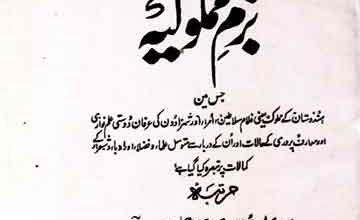 بزمِ مملوکیہ
جس میں
ہندوستان کے مملوک یعنی غلام سلاطین، امراء، اور شہزادوں کی عرفان دوستی علم نوازی
اور معارف پروری کے حالات اور اُن کے دربار سے متوسل علماء، و فضلاء، و ادباء، و شعراء کے
کمالات پر تبصرہ کیا گیا ہے
مرتبہ